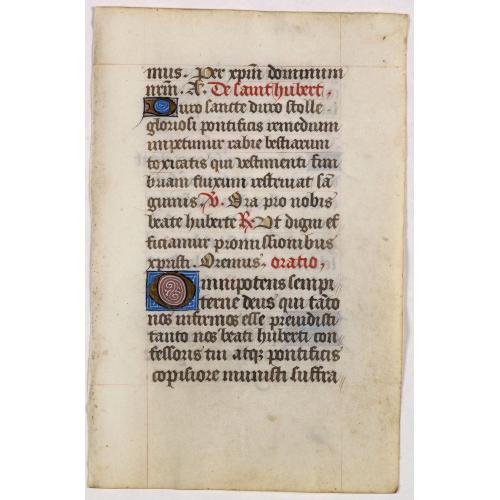 mus. Per xpm̄ dominum
nrm̄. A. De saint hubert,
Duro sancte duro stolle
gloriosi pontificis remedium
impetimur rabie bestiarum
toxicatis qui vestimenti fim
briam fluxum restrinat sā
guinis. V. Ora pro nobis
beate huberte R. Ut digni ef
ficiamur promissionibus
xpristi. Oremus. oratio,
Omnipotens sempi
terne deus qui tāto
nos infirmos esse previdisti
tanto nos beati huberti con
fessoris tui atqꝫ pontificis
copisiore munisti suffra